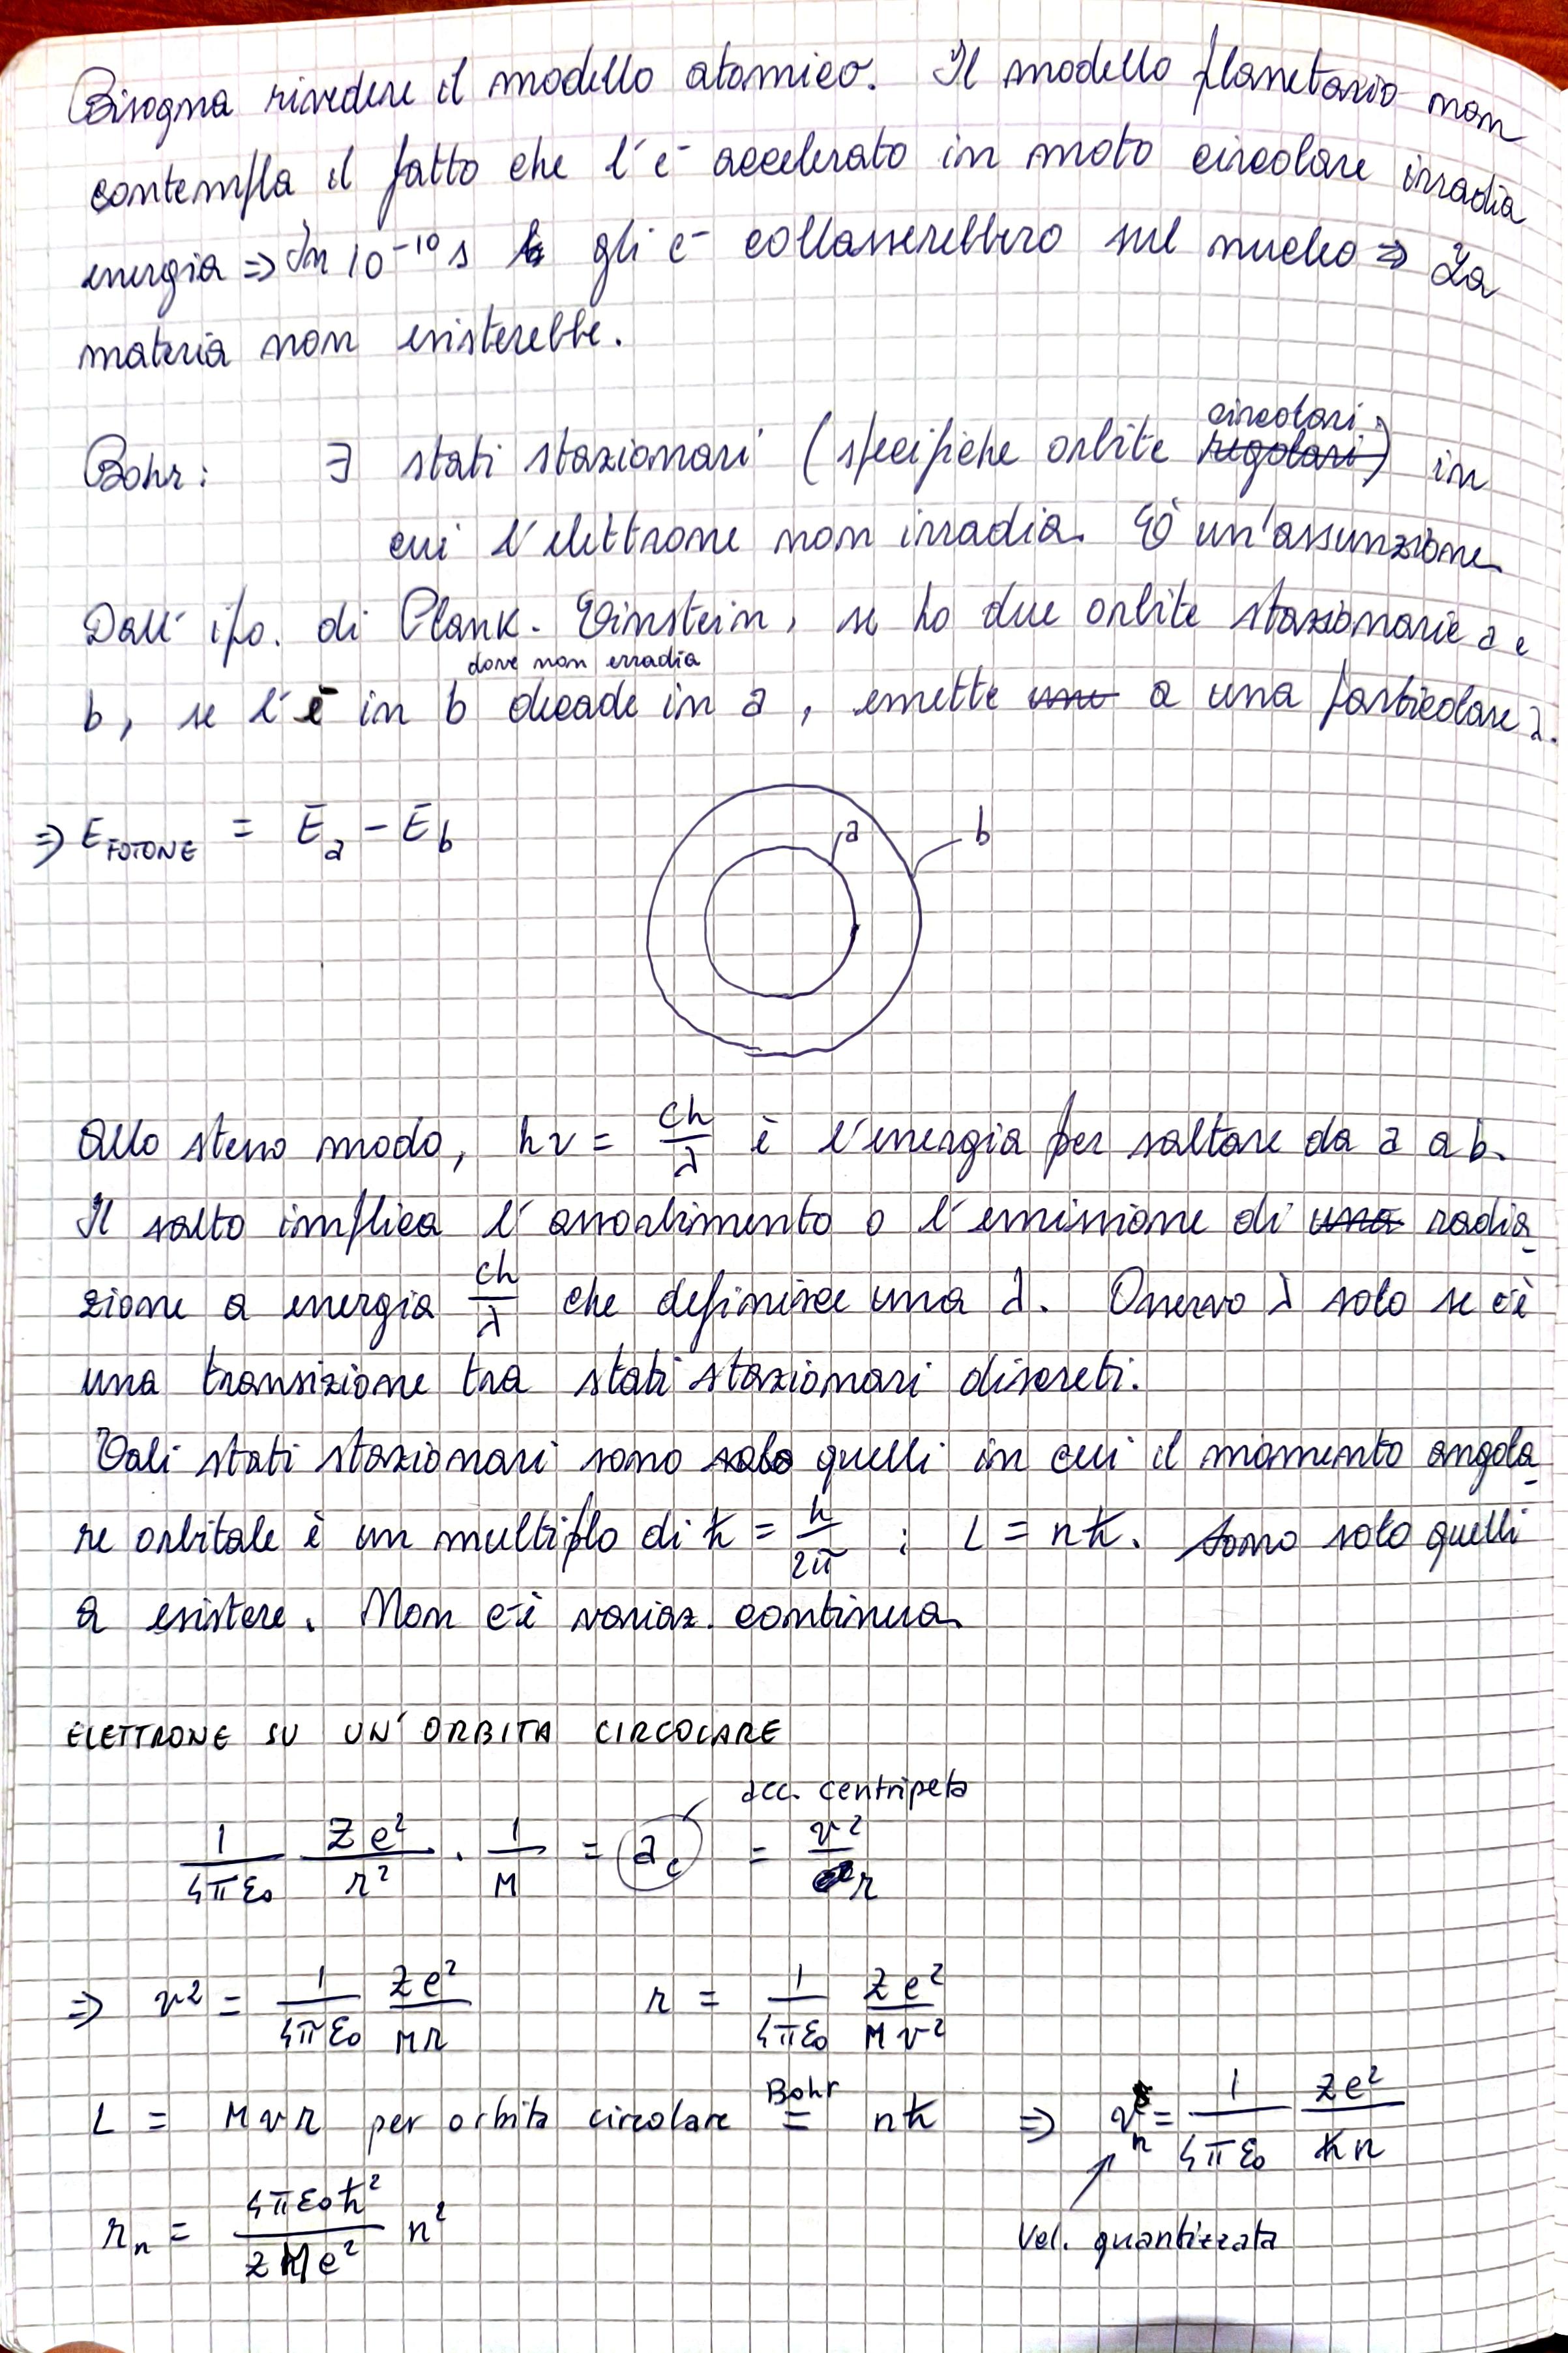 Bisogna rivedere il modello atomico. Il modello planetario non
contempla il fatto che l'e⁻ accelerato in moto circolare irradia
energia ⇒ In 10⁻¹⁰ s gli e⁻ collasserebbero sul nucleo ⇒ La
materia non esisterebbe.
Bohr: ∃ stati stazionari (specifiche orbite circolari) in
cui l'elettrone non irradia. È un'assunzione
Dall' ipo. di Plank. Einstein, se ho due orbite stazionarie a e
dove non erradia
b, se l'è in b decade in a, emette a una particolare λ.
⇒ E_FOTONE = E_a - E_b
a b
Allo stesso modo, hν = ch/λ è l'energia per saltare da a a b.
Il salto implica l'assorbimento o l'emissione di radia-
zione a energia ch/λ che definisce una λ. Osservo λ solo se c'è
una transizione tra stati stazionari discreti.
Tali stati stazionari sono solo quelli in cui il momento angola-
re orbitale è un multiplo di ħ = h/2π ; L = nħ. Sono solo quelli
a esistere. Non c'è variaz. continua.
ELETTRONE SU UN' ORBITA CIRCOLARE
acc. centripeta
1/4πε₀ Ze²/r² · 1/M = a_c = v²/r
⇒ v² = 1/4πε₀ Ze²/Mr r = 1/4πε₀ Ze²/Mv²
L = Mvr per orbita circolare =(Bohr) nħ ⇒ v_n = 1/4πε₀ Ze²/ħn
r_n = 4πε₀ħ²/ZMe² n² Vel. quantizzata